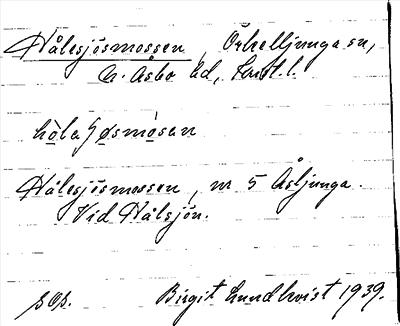 Hålesjösmossen, Örkelljunga sn,
N. Åsbo hd, Krist. l.
hòlasjøsmòsan
Hålesjösmossen, nr 5 Åsljunga.
Vid Hålsjön.
sep.
Birgit Lundkvist 1939.